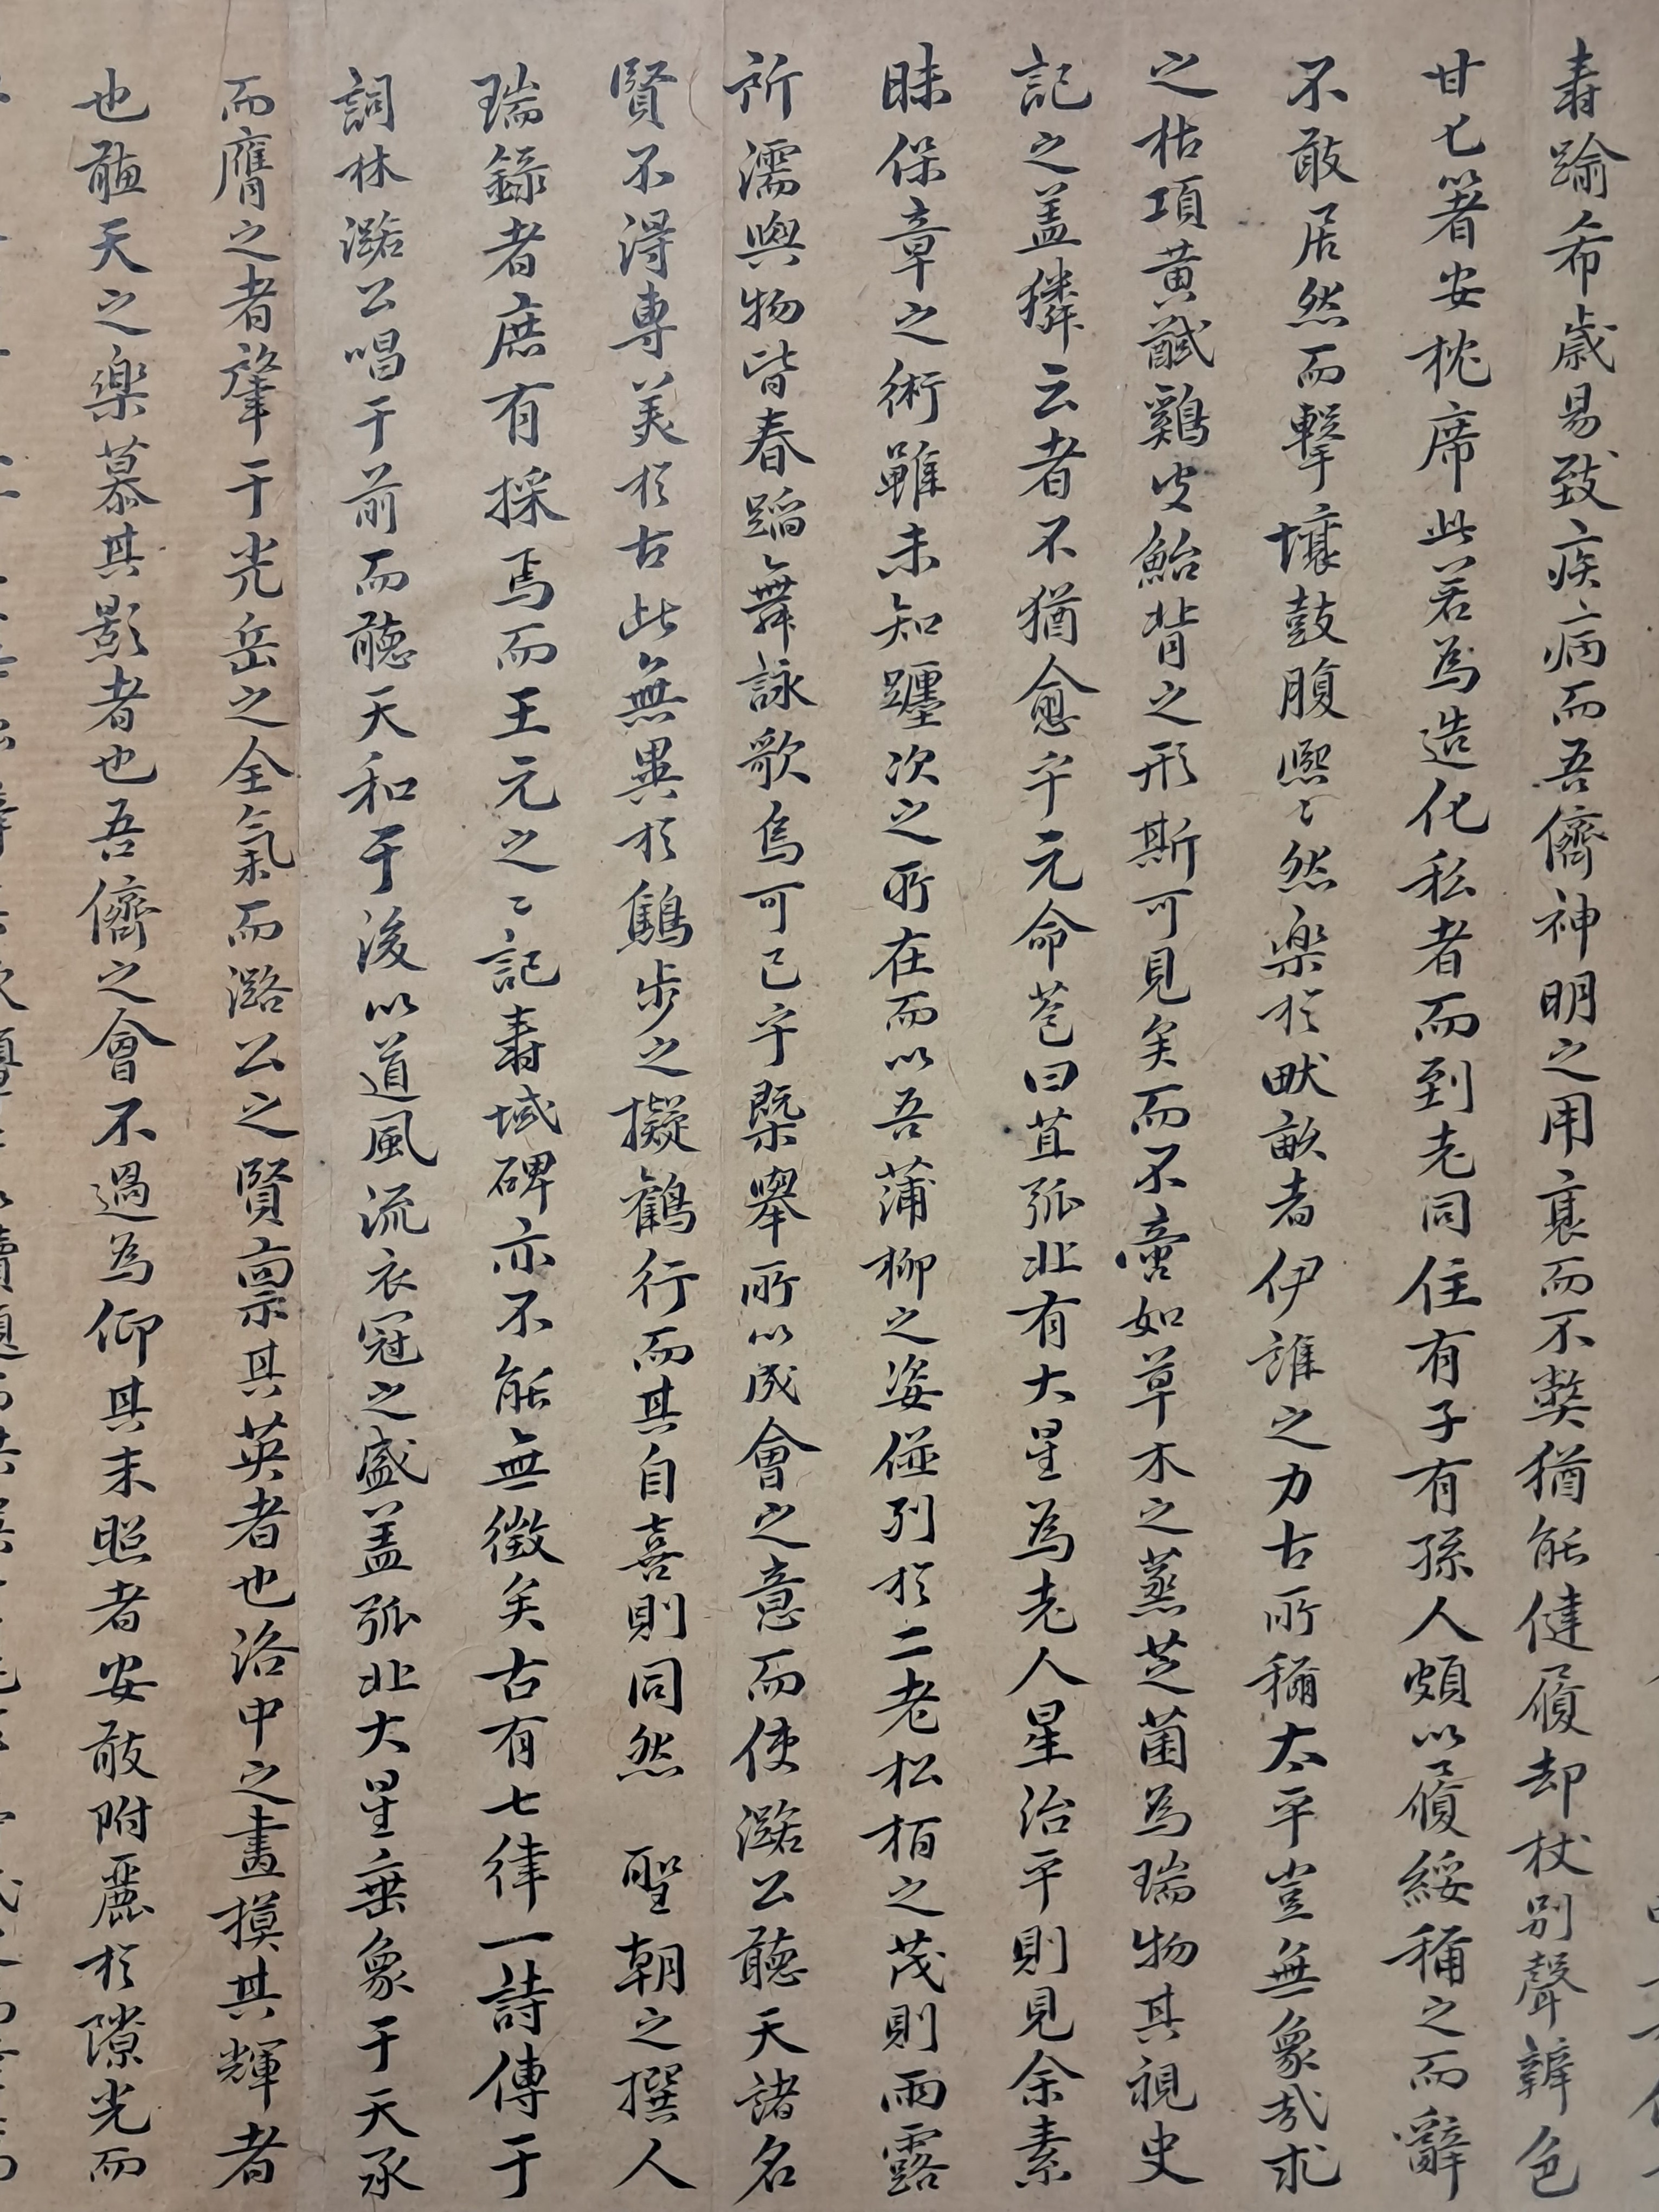 壽踰希歲易致疾病而吾儕神明之用衰而不弊猶能健履却杖別聲辨色
甘匕箸安枕席此若為造化私者而到老同住有子有孫人頗以履綏稱之而辭
不敢居然而擊壤鼓腹熙〻然樂於畎畝者伊誰之力古所稱太平豈無象哉求
之枯項黃馘雞皮鮐背之形斯可見矣而不啻如草木之蒸芝菌為瑞物其視史
記之盖獜云者不猶愈乎元命苞曰苴弧北有大星為老人星治平則見余素
昧保章之術雖未知躔次之所在而以吾蒲柳之姿僅列於二老松栢之茂則雨露
所濡與物皆春蹈舞詠歌烏可已乎槩舉所以成會之意而使潞公聽天諸名
賢不得專美於古此無異於鷦步之擬鶴行而其自喜則同然 聖朝之撰人
瑞錄者庶有採焉而王元之〻記壽域碑亦不能無徵矣古有七律一詩傳于
詞林潞公唱于前而聽天和于後以道風流衣冠之盛盖弧北大星垂象于天承
而膺之者肇于光岳之全氣而潞公之賢禀其英者也洛中之畫摸其輝者
也聽天之樂慕其影者也吾儕之會不過為仰其末照者安敢附麗於隙光而